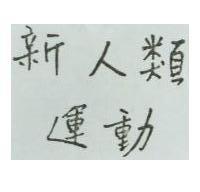 新人類
運動